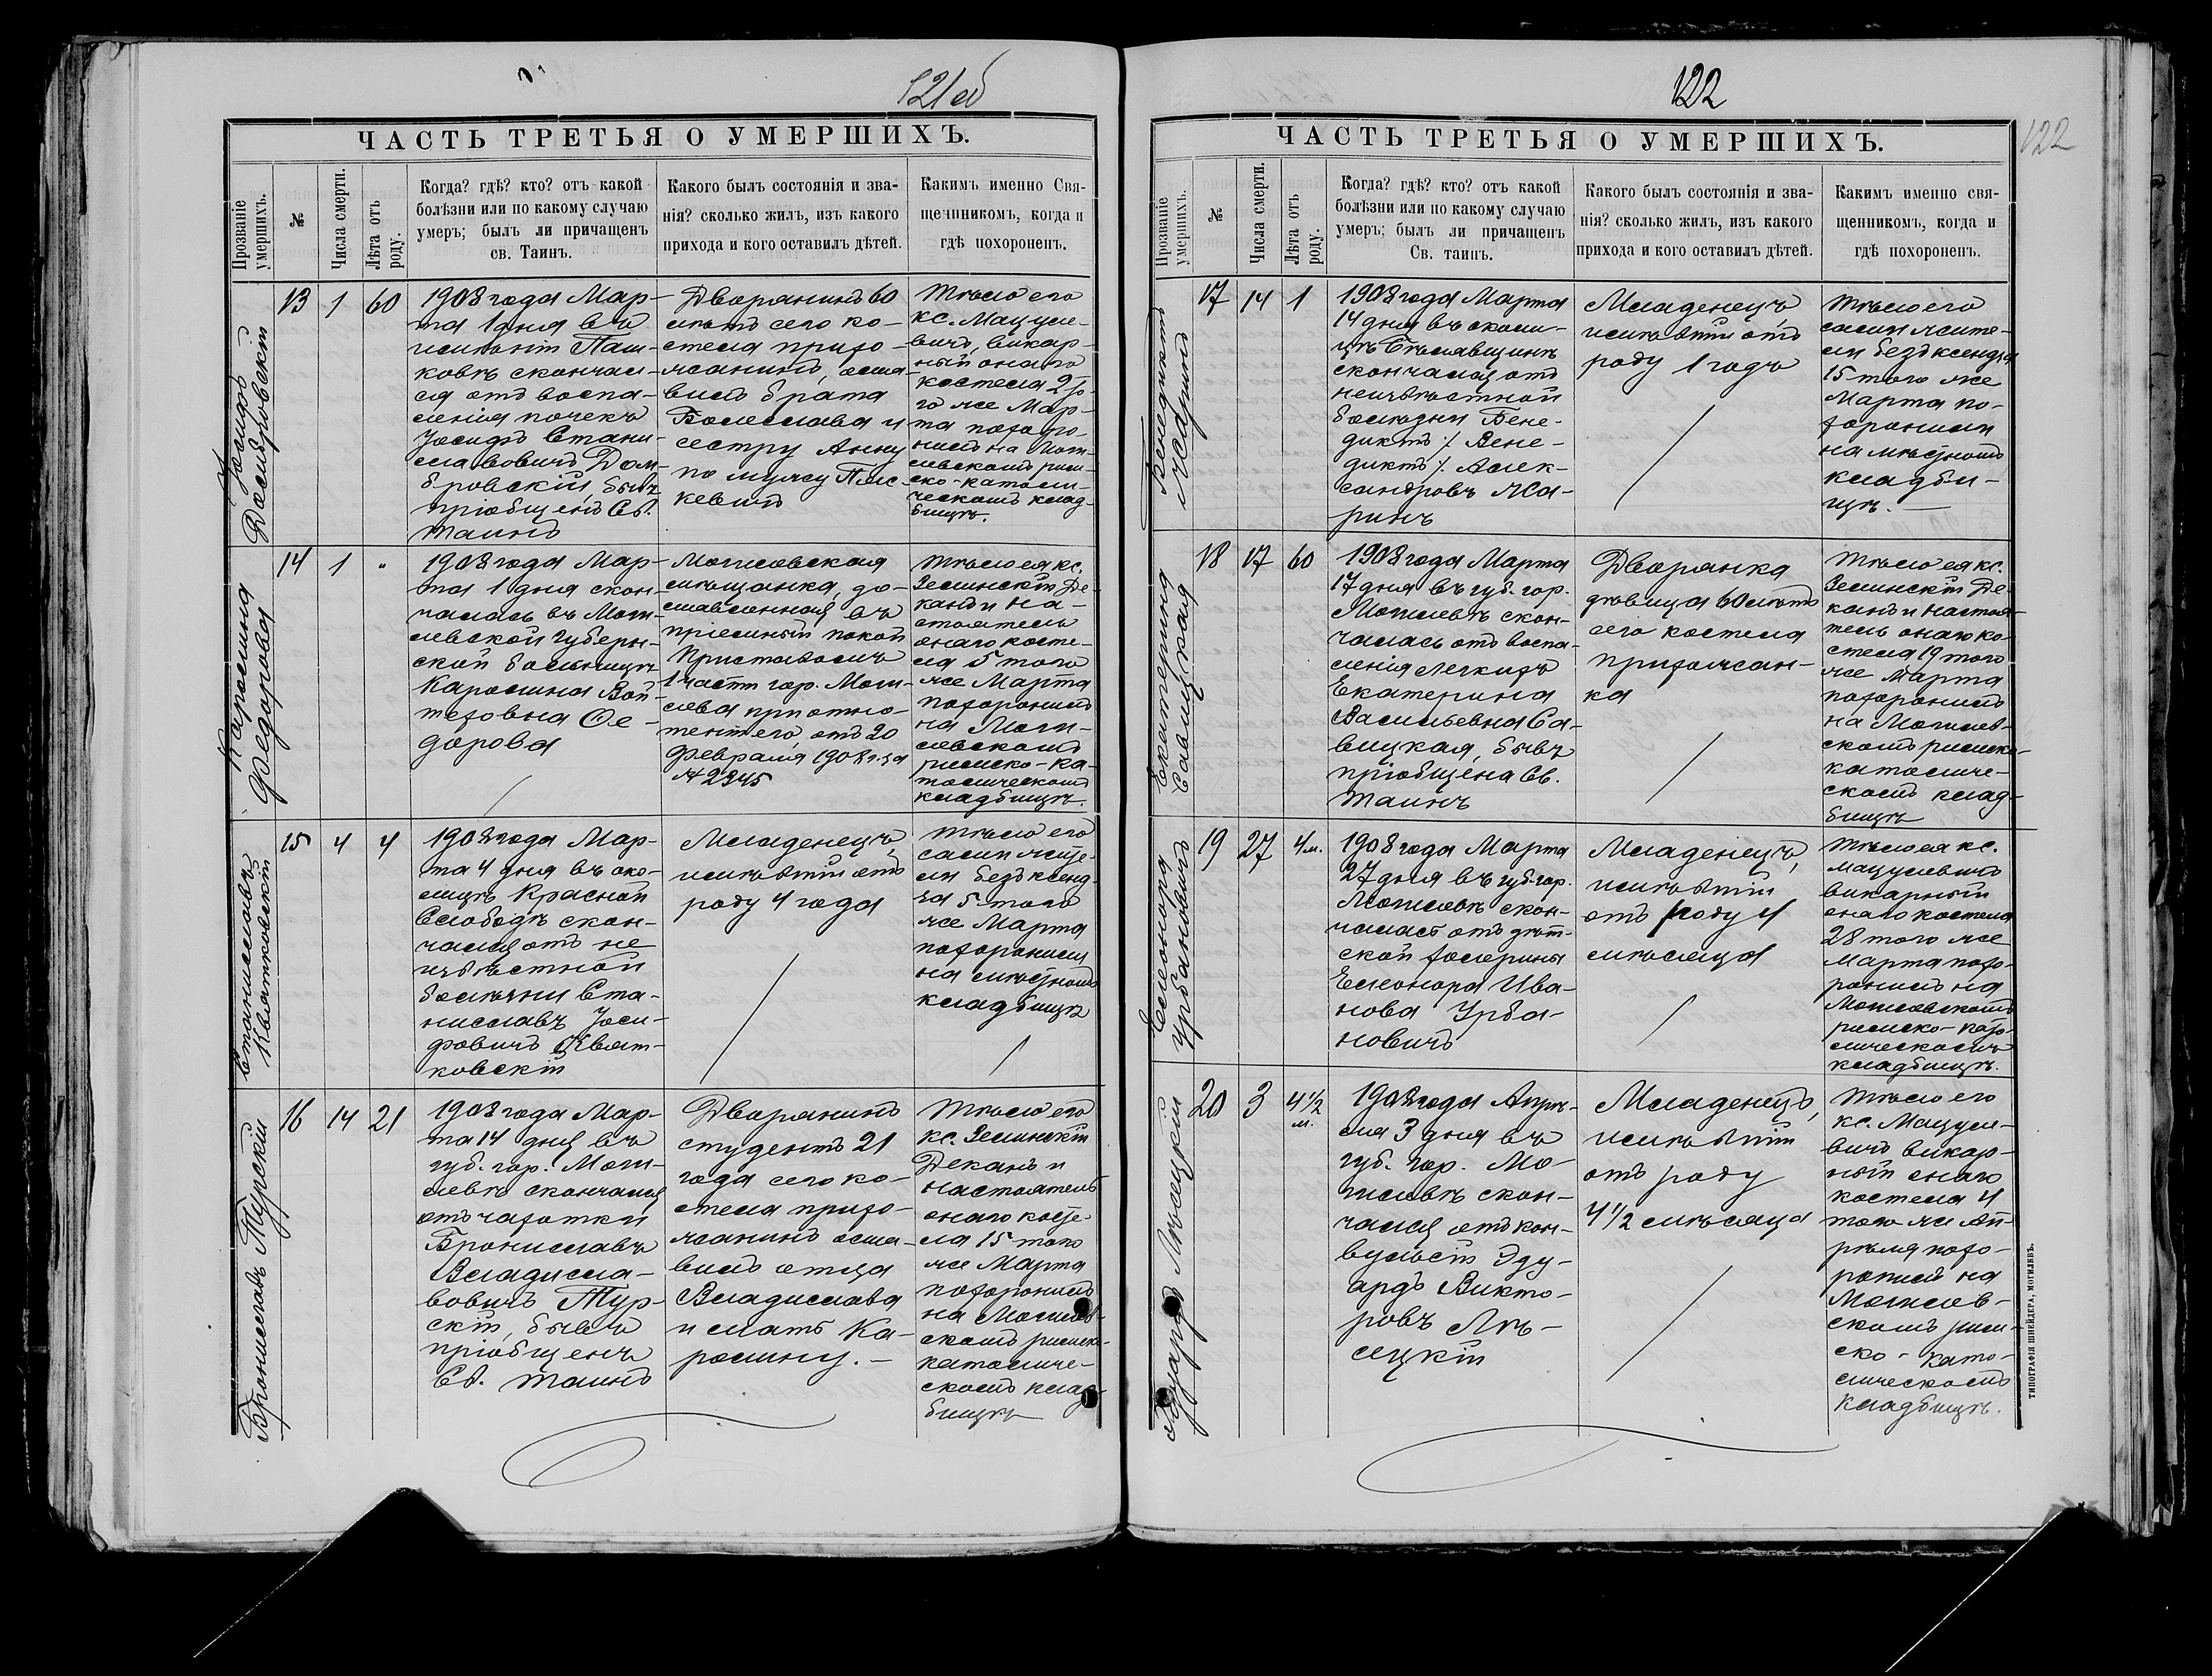 121об
ЧАСТЬ ТРЕТЬЯ О УМЕРШИХЪ.
Прозваніе умершихъ.
№
Числа смерти.
Лѣта отъ роду.
Когда? гдѣ? кто? отъ какой
болѣзни или по какому случаю
умеръ; былъ ли причащенъ
св. Таинъ.
Какого былъ состоянія и зва-
нія? сколько жилъ, изъ какого
прихода и кого оставилъ дѣтей.
Какимъ именно Свя-
щенникомъ, когда и
гдѣ похороненъ.
Іосифъ
Домбровскій
13
1
60
1908 года Мар-
та 1 дня въ
имѣніи Паш-
ковѣ скончал-
ся отъ воспа-
ленія почекъ
Іосифъ Стани-
славовичъ Дом-
бровскій, бывъ
пріобщенъ Св.
Таинъ
Дворянинъ 60
лѣтъ сего ко-
стела прихо-
жанинъ, оста-
вилъ брата
Болеслава и
сестру Анну
по мужу
Тѣло его
кс. Мацуле-
вичъ, викар-
ный онаго
костела 2го
го же Мар-
та похоро-
нилъ на Моги-
левскомъ рим-
ско-католи-
ческомъ клад-
бищѣ.
Каролина
Федорова
14
1
"
1908 года Мар-
та 1 дня скон-
чалась въ Моги-
левской губерн-
ской больницѣ
Каролина Вой-
теховна Фе-
дорова
Могилевская
мѣщанка, до-
ставленная въ
пріемный покой
Приставомъ
1 части гор. Моги-
лева при отно-
теніи его, отъ 20
Февраля 1908 г. за
№ 2345
Тѣло ея кс.
Зелинскій Де-
канъ и на-
стоятель
онаго косте-
ла 5 того
же Марта
похоронилъ
на Моги-
левскомъ
римско-ка-
толическомъ
кладбищѣ.
Станиславъ
Квятковскій
15
4
4
1908 года Мар-
та 4 дня въ око-
лицѣ Красной
Слободѣ скон-
чался отъ не
извѣстной
болѣзни Ста-
ниславъ Іоси-
фовичъ Квят-
ковскій
Младенецъ,
имѣвшій отъ
роду 4 года
Тѣло его
сами жите-
ли безъ ксенд-
за 5 того
же Марта
похоронили
на мѣстномъ
кладбищѣ
Брониславъ Турскій
16
14
21
1908 года Мар-
та 14 дня въ
губ. гор. Моги-
левѣ скончался
отъ чахотки
Брониславъ
Владисла-
вовичъ Тур-
скій, бывъ
пріобщенъ
Св. Таинъ
Дворянинъ
студентъ 21
года сего ко-
стела прихо-
жанинъ оста-
вилъ отца
Владислава
и мать Ка-
ролину.-
Тѣло его
кс. Зелинскій
Деканъ и
настоятель
онаго косте-
ла 15 того
же Марта
похоронилъ
на Могилев-
скомъ римско-
католиче-
скомъ клад-
бищѣ
122
122
ЧАСТЬ ТРЕТЬЯ О УМЕРШИХЪ.
Прозваніе умершихъ.
№
Числа смерти.
Лѣта отъ роду.
Когда? гдѣ? кто? отъ какой
болѣзни или по какому случаю
умеръ; былъ ли причащенъ
Св. таинъ.
Какого былъ состоянія и зва-
нія? сколько жилъ, изъ какого
прихода и кого оставилъ дѣтей.
Какимъ именно свя-
щенникомъ, когда и
гдѣ похороненъ.
Бенедиктъ
Жаринъ
17
14
1
1908 года Марта
14 дня въ околи-
цѣ Бѣлявщинѣ
скончался отъ
неизвѣстной
болѣзни Бене-
диктъ /. Вене-
диктъ /. Алек-
сандровъ Жа-
ринъ
Младенецъ
имѣвшій отъ
роду 1 годъ
Тѣло его
сами жите-
ли безъ ксендза
15 того же
Марта по-
хоронили
на мѣстномъ
кладби-
щѣ.
Екатерина
Савицкая
18
17
60
1908 года Марта
17 дня въ губ. гор.
Могилевѣ скон-
чалась отъ воспа-
ленія легкихъ
Екатерина
Васильевна Са-
вицкая, бывъ
пріобщена Св.
Таинъ
Дворянка
дѣвица 60 лѣтъ
сего костела
прихожан-
ка
Тѣло ея кс.
Зелинскій Де-
канъ и настоя-
тель онаго ко-
стела 19 того
же Марта
похоронилъ
на Могилев-
скомъ римско-
католиче-
скомъ клад-
бищѣ
Елеонора
Урбановичъ
19
27
4м.
1908 года Марта
27 дня въ губ. гор.
Могилевѣ скон-
чалась отъ дѣт-
ской холерины
Елеонора Ива-
нова Урба-
новичъ
Младенецъ,
имѣвшій
отъ роду 4
мѣсяца
Тѣло ея кс.
Мацулевичъ
викарный
онаго костела
28 того же
Марта похо-
ронилъ на
Могилевскомъ
римско-като-
лическомъ
кладбищѣ.
Эдуардъ Лѣсецкій
20
3
4½
м.
1908 года Апрѣ-
ля 3 дня въ
губ. гор. Мо-
гилевѣ скон-
чался отъ кон-
вульсій Эду-
ардъ Викто-
ровъ Лѣ-
сецкій
Младенецъ,
имѣвшій
отъ роду
4½ мѣсяца
Тѣло его
кс. Мацуле-
вичъ викар-
ный онаго
костела 4
того же Ап-
рѣля похо-
ронилъ на
Могилев-
скомъ рим-
ско-като-
лическомъ
кладбищѣ.
ТИПОГРАФІЯ ШНЕЙДЕРА, МОГИЛЕВЪ.